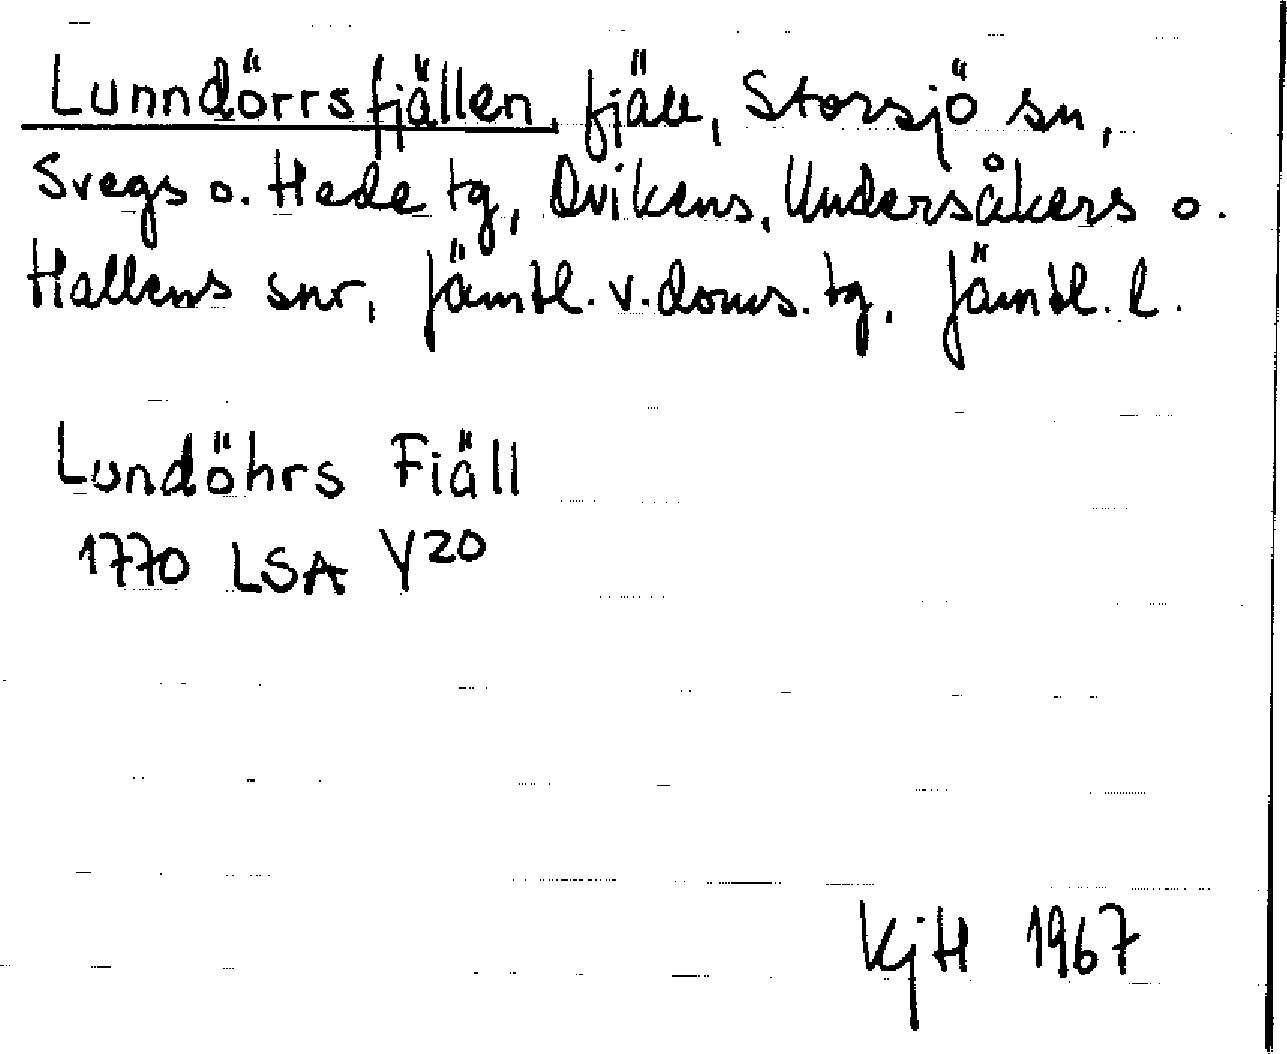 Lunndörrsfjällen, fjäll, Storsjö sn,
Svegs o. Hede tg, Ovikens, Undersåkers o.
Hallens snr, Jämtl. v. doms. tg, Jämtl. l.
Lundöhrs Fiäll
1770 LSA Y20
KjH 1967